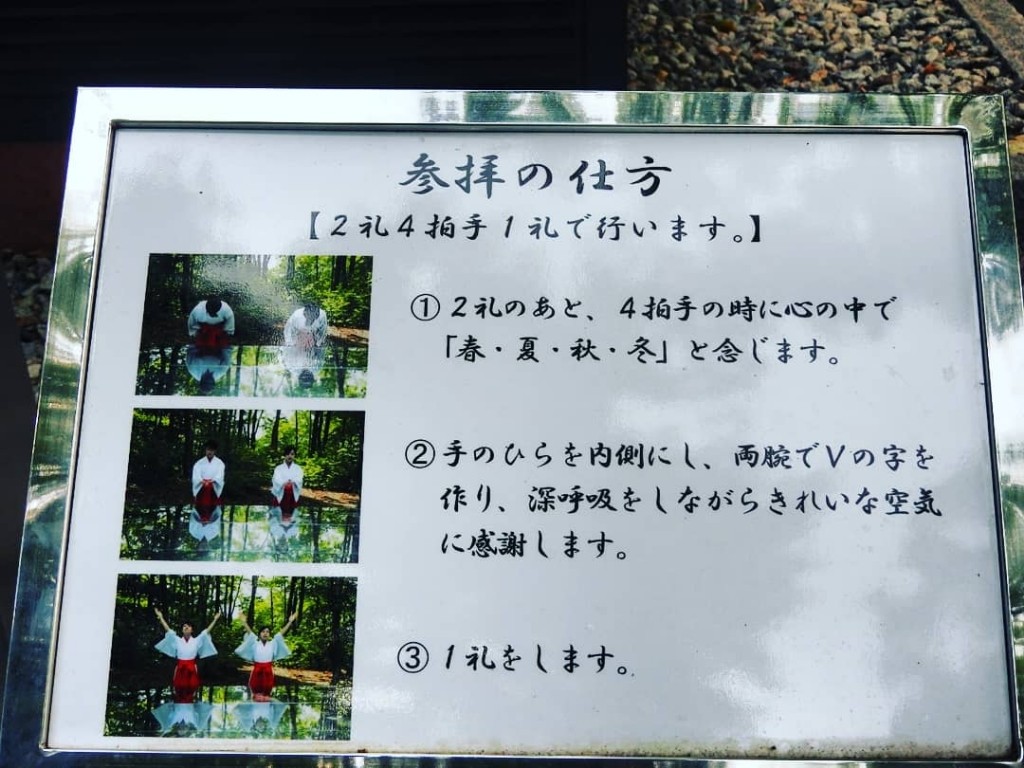 参拝の仕方
【２礼４拍手１礼で行います。】
①２礼のあと、４拍手の時に心の中で
「春・夏・秋・冬」と念じます。
②手のひらを内側にし、両腕でＶの字を
作り、深呼吸をしながらきれいな空気
に感謝します。
③１礼をします。